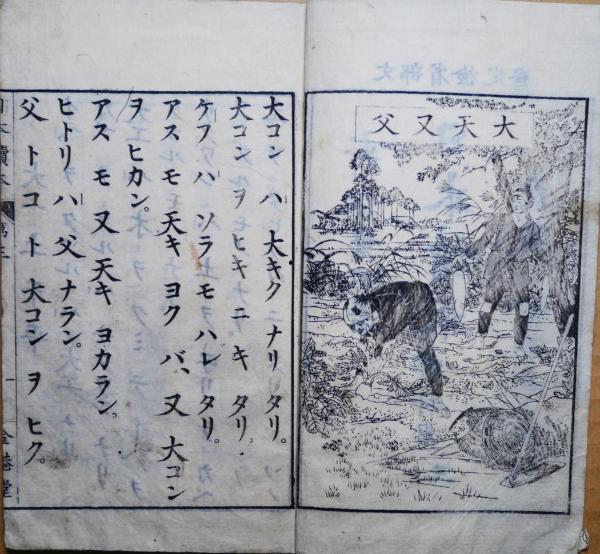 大天又父
大コン ハ 大キク ナリタリ。
大コン ヲ ヒキ ニ キタリ。
ケフ ハ ソラ モ ハレタリ。
アス モ 天キ ヨク バ、又 大コン
ヲ ヒカン。
アス モ 又 天キ ヨカラン。
ヒトリ ハ 父 ナラン。
父 ト コ ト 大コン ヲ ヒク。
日本讀本
一
金港堂